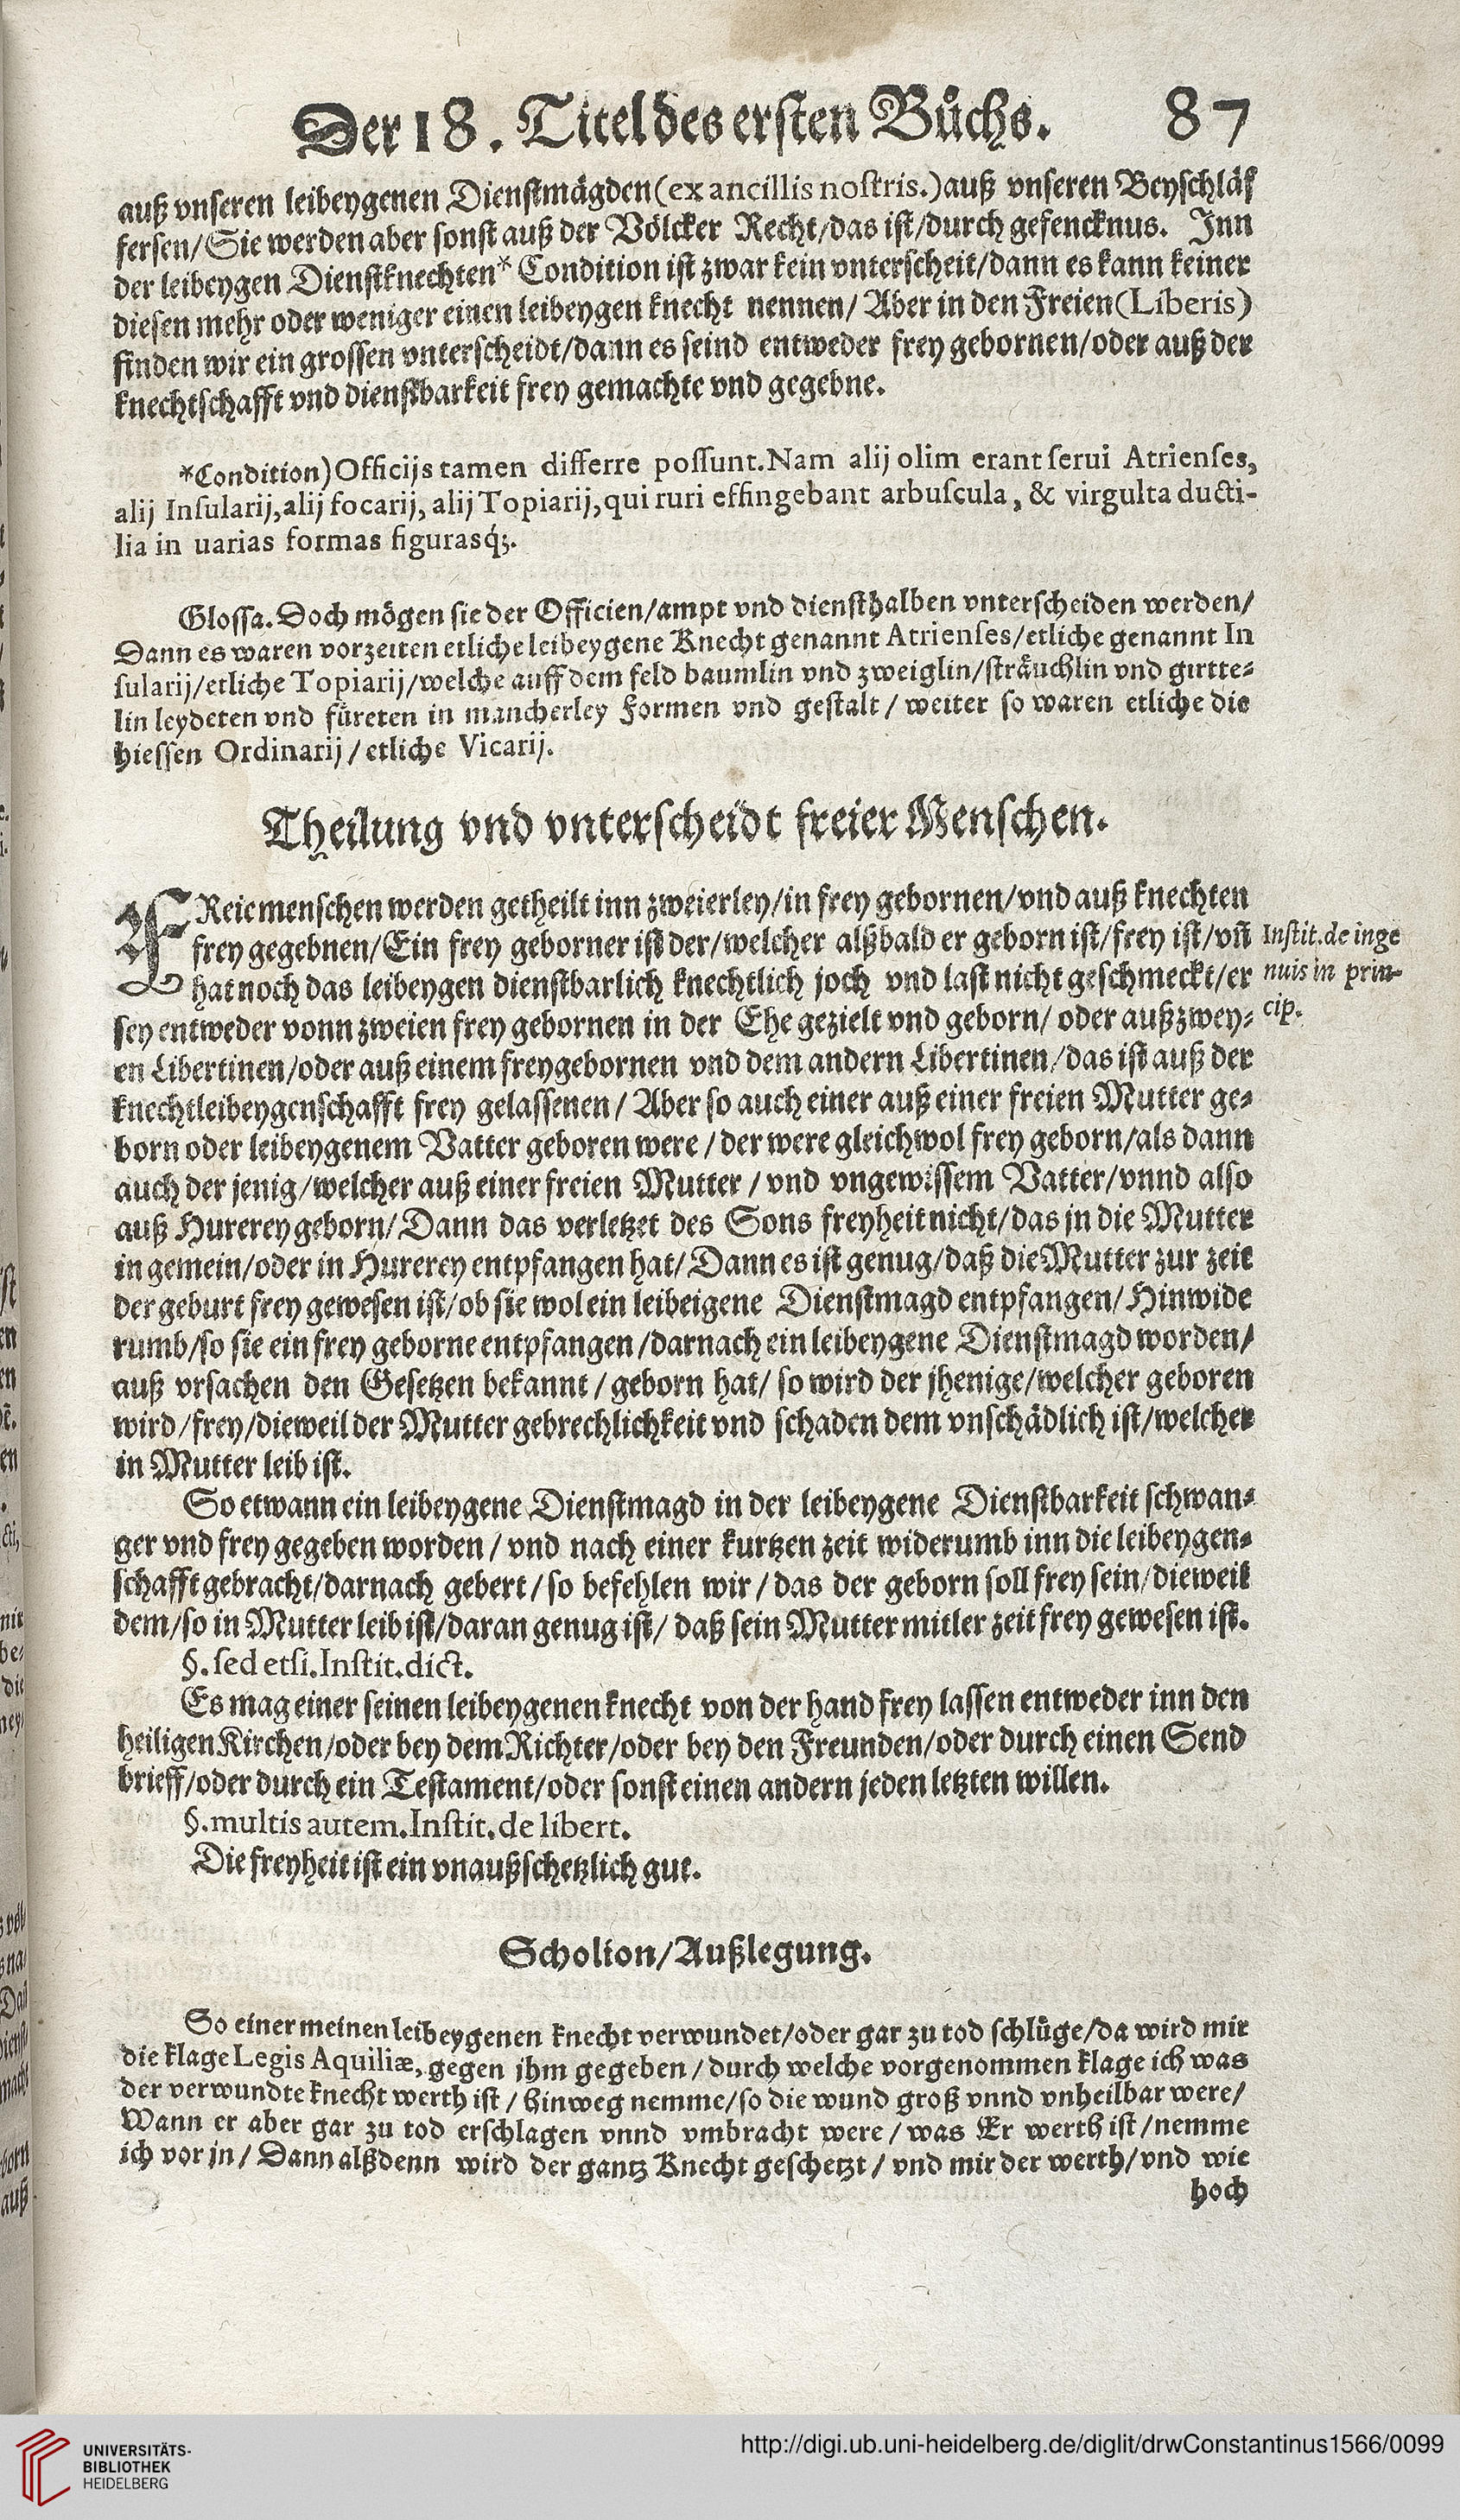 Der 18. Titel des ersten Bůchs. 87
auß vnseren leibeygenen Dienstmägden (ex ancillis nostris.) auß vnseren Beyschläf
fersen / Sie werden aber sonst auß der Völcker Recht / das ist / durch gefencknus. Inn
der leibeygen Dienstknechten* Condition ist zwar kein vnterscheit / dann es kann keiner
diesen mehr oder weniger einen leibeygen knecht nennen / Aber in den Freien (Liberis)
finden wir ein grossen vnterscheidt / dann es seind entweder frey gebornen / oder auß der
knechtschafft vnd dienstbarkeit frey gemachte vnd gegebne.
*Condition) Officijs tamen differre possunt. Nam alij olim erant serui Atrienses,
alij Insularij, alij focarij, alij Topiarij, qui ruri effingebant arbuscula, & virgulta ducti-
lia in uarias formas figurasq́;.
Glossa. Doch mögen sie der Officien / ampt vnd diensthalben vnterscheiden werden /
Dann es waren vorzeiten etliche leibeygene Knecht genannt Atrienses / etliche genannt In
sularij / etliche Topiarij / welche auff dem feld baumlin vnd zweiglin / sträuchlin vnd girtte-
lin leydeten vnd füreten in mancherley Formen vnd gestalt / weiter so waren etliche die
hiessen Ordinarij / etliche Vicarij.
Theilung vnd vnterscheidt freier Menschen.
FReie menschen werden getheilt inn zweierley / in frey gebornen / vnd auß knechten
frey gegebnen / Ein frey geborner ist der / welcher alßbald er geborn ist / frey ist / vñ
hat noch das leibeygen dienstbarlich knechtlich joch vnd last nicht geschmeckt / er
sey entweder vonn zweien frey gebornen in der Ehe gezielt vnd geborn / oder auß zwey-
en Libertinen / oder auß einem freygebornen vnd dem andern Libertinen / das ist auß der
knechtleibeygenschafft frey gelassenen / Aber so auch einer auß einer freien Mutter ge-
born oder leibeygenem Vatter geboren were / der were gleichwol frey geborn / als dann
auch der jenig / welcher auß einer freien Mutter / vnd vngewissem Vatter / vnnd also
auß Hurerey geborn / Dann das verletzet des Sons freyheit nicht / das jn die Mutter
in gemein / oder in Hurerey entpfangen hat / Dann es ist genug / daß die Mutter zur zeit
der geburt frey gewesen ist / ob sie wol ein leibeigene Dienstmagd entpfangen / Hinwide
rumb / so sie ein frey geborne entpfangen / darnach ein leibeygene Dienstmagd worden /
auß vrsachen den Gesetzen bekannt / geborn hat / so wird der jhenige / welcher geboren
wird / frey / dieweil der Mutter gebrechlichkeit vnd schaden dem vnschädlich ist / welcher
in Mutter leib ist.
Instit. de inge
nuis in prin-
cip.
So etwann ein leibeygene Dienstmagd in der leibeygene Dienstbarkeit schwan-
ger vnd frey gegeben worden / vnd nach einer kurtzen zeit widerumb inn die leibeygen-
schafft gebracht / darnach gebert / so befehlen wir / das der geborn soll frey sein / dieweil
dem / so in Mutter leib ist / daran genug ist / daß sein Mutter mitler zeit frey gewesen ist.
§. sed etsi. Instit. dict.
Es mag einer seinen leibeygenen knecht von der hand frey lassen entweder inn den
heiligen Kirchen / oder bey dem Richter / oder bey den Freunden / oder durch einen Send
brieff / oder durch ein Testament / oder sonst einen andern jeden letzten willen.
§. multis autem. Instit. de libert.
Die freyheit ist ein vnaußschetzlich gut.
Scholion / Außlegung.
So einer meinen leibeygenen knecht verwundet / oder gar zu tod schlüge / da wird mir
die klage Legis Aquiliæ, gegen jhm gegeben / durch welche vorgenommen klage ich was
der verwundte knecht werth ist / hinweg nemme / so die wund groß vnnd vnheilbar were /
Wann er aber gar zu tod erschlagen vnnd vmbracht were / was Er werth ist / nemme
ich vor jn / Dann alßdenn wird der gantz Knecht geschetzt / vnd mir der werth / vnd wie
hoch
UNIVERSITÄTS-
BIBLIOTHEK
HEIDELBERG
http://digi.ub.uni-heidelberg.de/diglit/drwConstantinus1566/0099